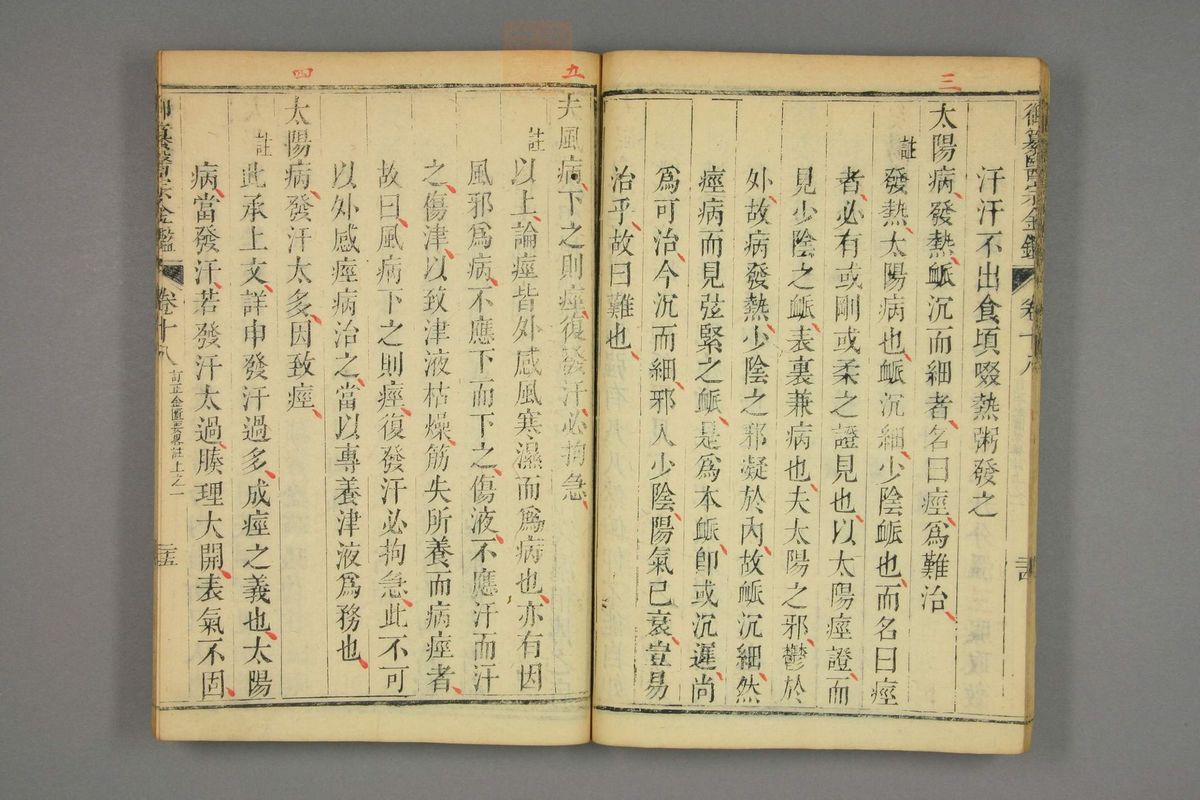 三
御纂醫宗金鑑 卷十八
汗汗不出食頃啜熱粥發之
太陽病發熱脈沉而細者名曰痙爲難治
註
發熱太陽病也脈沉細少陰脈也而名曰痙
者必有或剛或柔之證見也以太陽痙證而
見少陰之脈表裏兼病也夫太陽之邪鬱於
外故病發熱少陰之邪凝於內故脈沉細然
痙病而見弦緊之脈是爲本脈卽或沉遲尚
爲可治今沉而細邪入少陰陽氣已衰豈易
治乎故曰難也
五
夫風病下之則痙復發汗必拘急
註
以上論痙皆外感風寒濕而爲病也亦有因
風邪爲病不應下而下之傷液不應汗而汗
之傷津以致津液枯燥筋失所養而病痙者
故曰風病下之則痙復發汗必拘急此不可
以外感痙病治之當以專養津液爲務也
四
太陽病發汗太多因致痙
註
此承上文詳申發汗過多成痙之義也太陽
病當發汗若發汗太過腠理大開表氣不固
御纂醫宗金鑑 卷十八 訂正金匱要畧註上之一